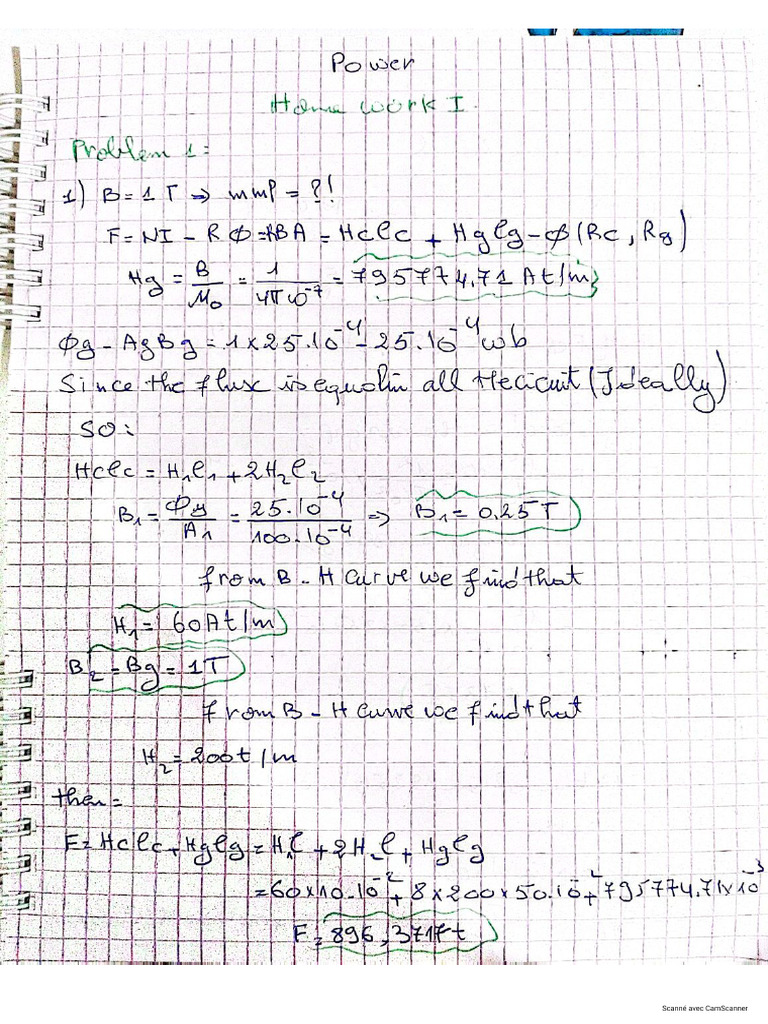 Power
Home work I
Problem 1:
1) B = 1 T => mmf = ?!
F = NI - R Φ = ΦBA = Hclc + Hglg - Φ (Rc, Rg)
Hg = B/Mo = 1/4π10^-7 = 795774,71 At/m
Φg - AgBg = 1 x 25.10^-4 - 25.10^-4 wb
Since the flux is equal in all the cicuit (Ideally)
SO:
Hclc = H1l1 + 2H2l2
B1 = Φg/A1 = 25.10^-4/100.10^-4 => B1 = 0.25 T
from B - H curve we find that
H1 = 60 At/m
B2 - Bg = 1 T
from B - H curve we find that
H2 = 200t/m
then =
F = Hclc + Hglg = H1l + 2H l + Hglg
= 60x10.10^-2 + 8x200x50.10^-2 + 795774.71x10^-3
F = 896,371